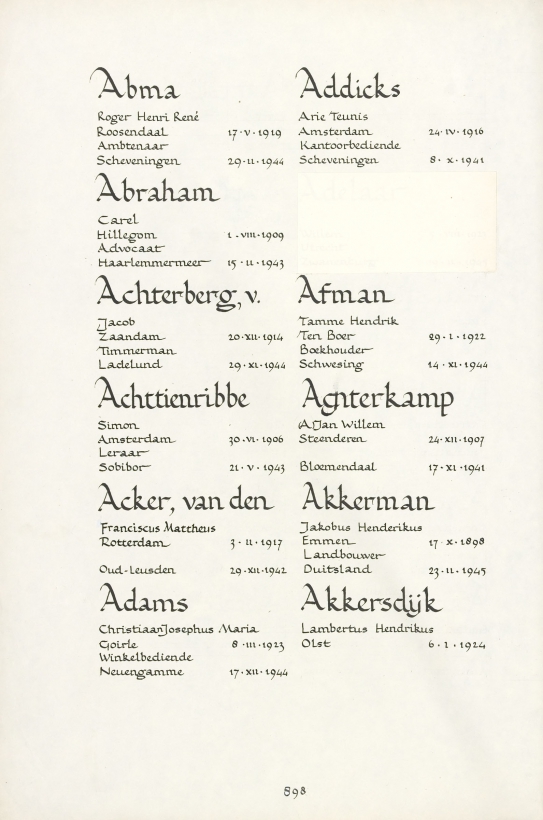 Abma
Roger Henri René
Roosendaal 17·V·1919
Ambtenaar
Scheveningen 29·II·1944
Abraham
Carel
Hillegom 1·VIII·1909
Advocaat
Haarlemmermeer 15·II·1943
Achterberg, v.
Jacob
Zaandam 20·XII·1914
Timmerman
Ladelund 29·XI·1944
Achttienribbe
Simon
Amsterdam 30·VI·1906
Leraar
Sobibor 21·V·1943
Acker, van den
Franciscus Mattheus
Rotterdam 3·II·1917
Oud-Leusden 29·XII·1942
Adams
Christiaan Josephus Maria
Goirle 8·III·1923
Winkelbediende
Neuengamme 17·XII·1944
Addicks
Arie Teunis
Amsterdam 24·IV·1916
Kantoorbediende
Scheveningen 8·X·1941
Afman
Tamme Hendrik
Ten Boer 29·1·1922
Boekhouder
Schwesing 14·XI·1944
Agterkamp
Jan Willem
Steenderen 24·XII·1907
Bloemendaal 17·XI·1941
Akkerman
Jakobus Henderikus
Emmen 17·X·1898
Landbouwer
Duitsland 23·II·1945
Akkersdijk
Lambertus Hendrikus
Olst 6·1·1924
898